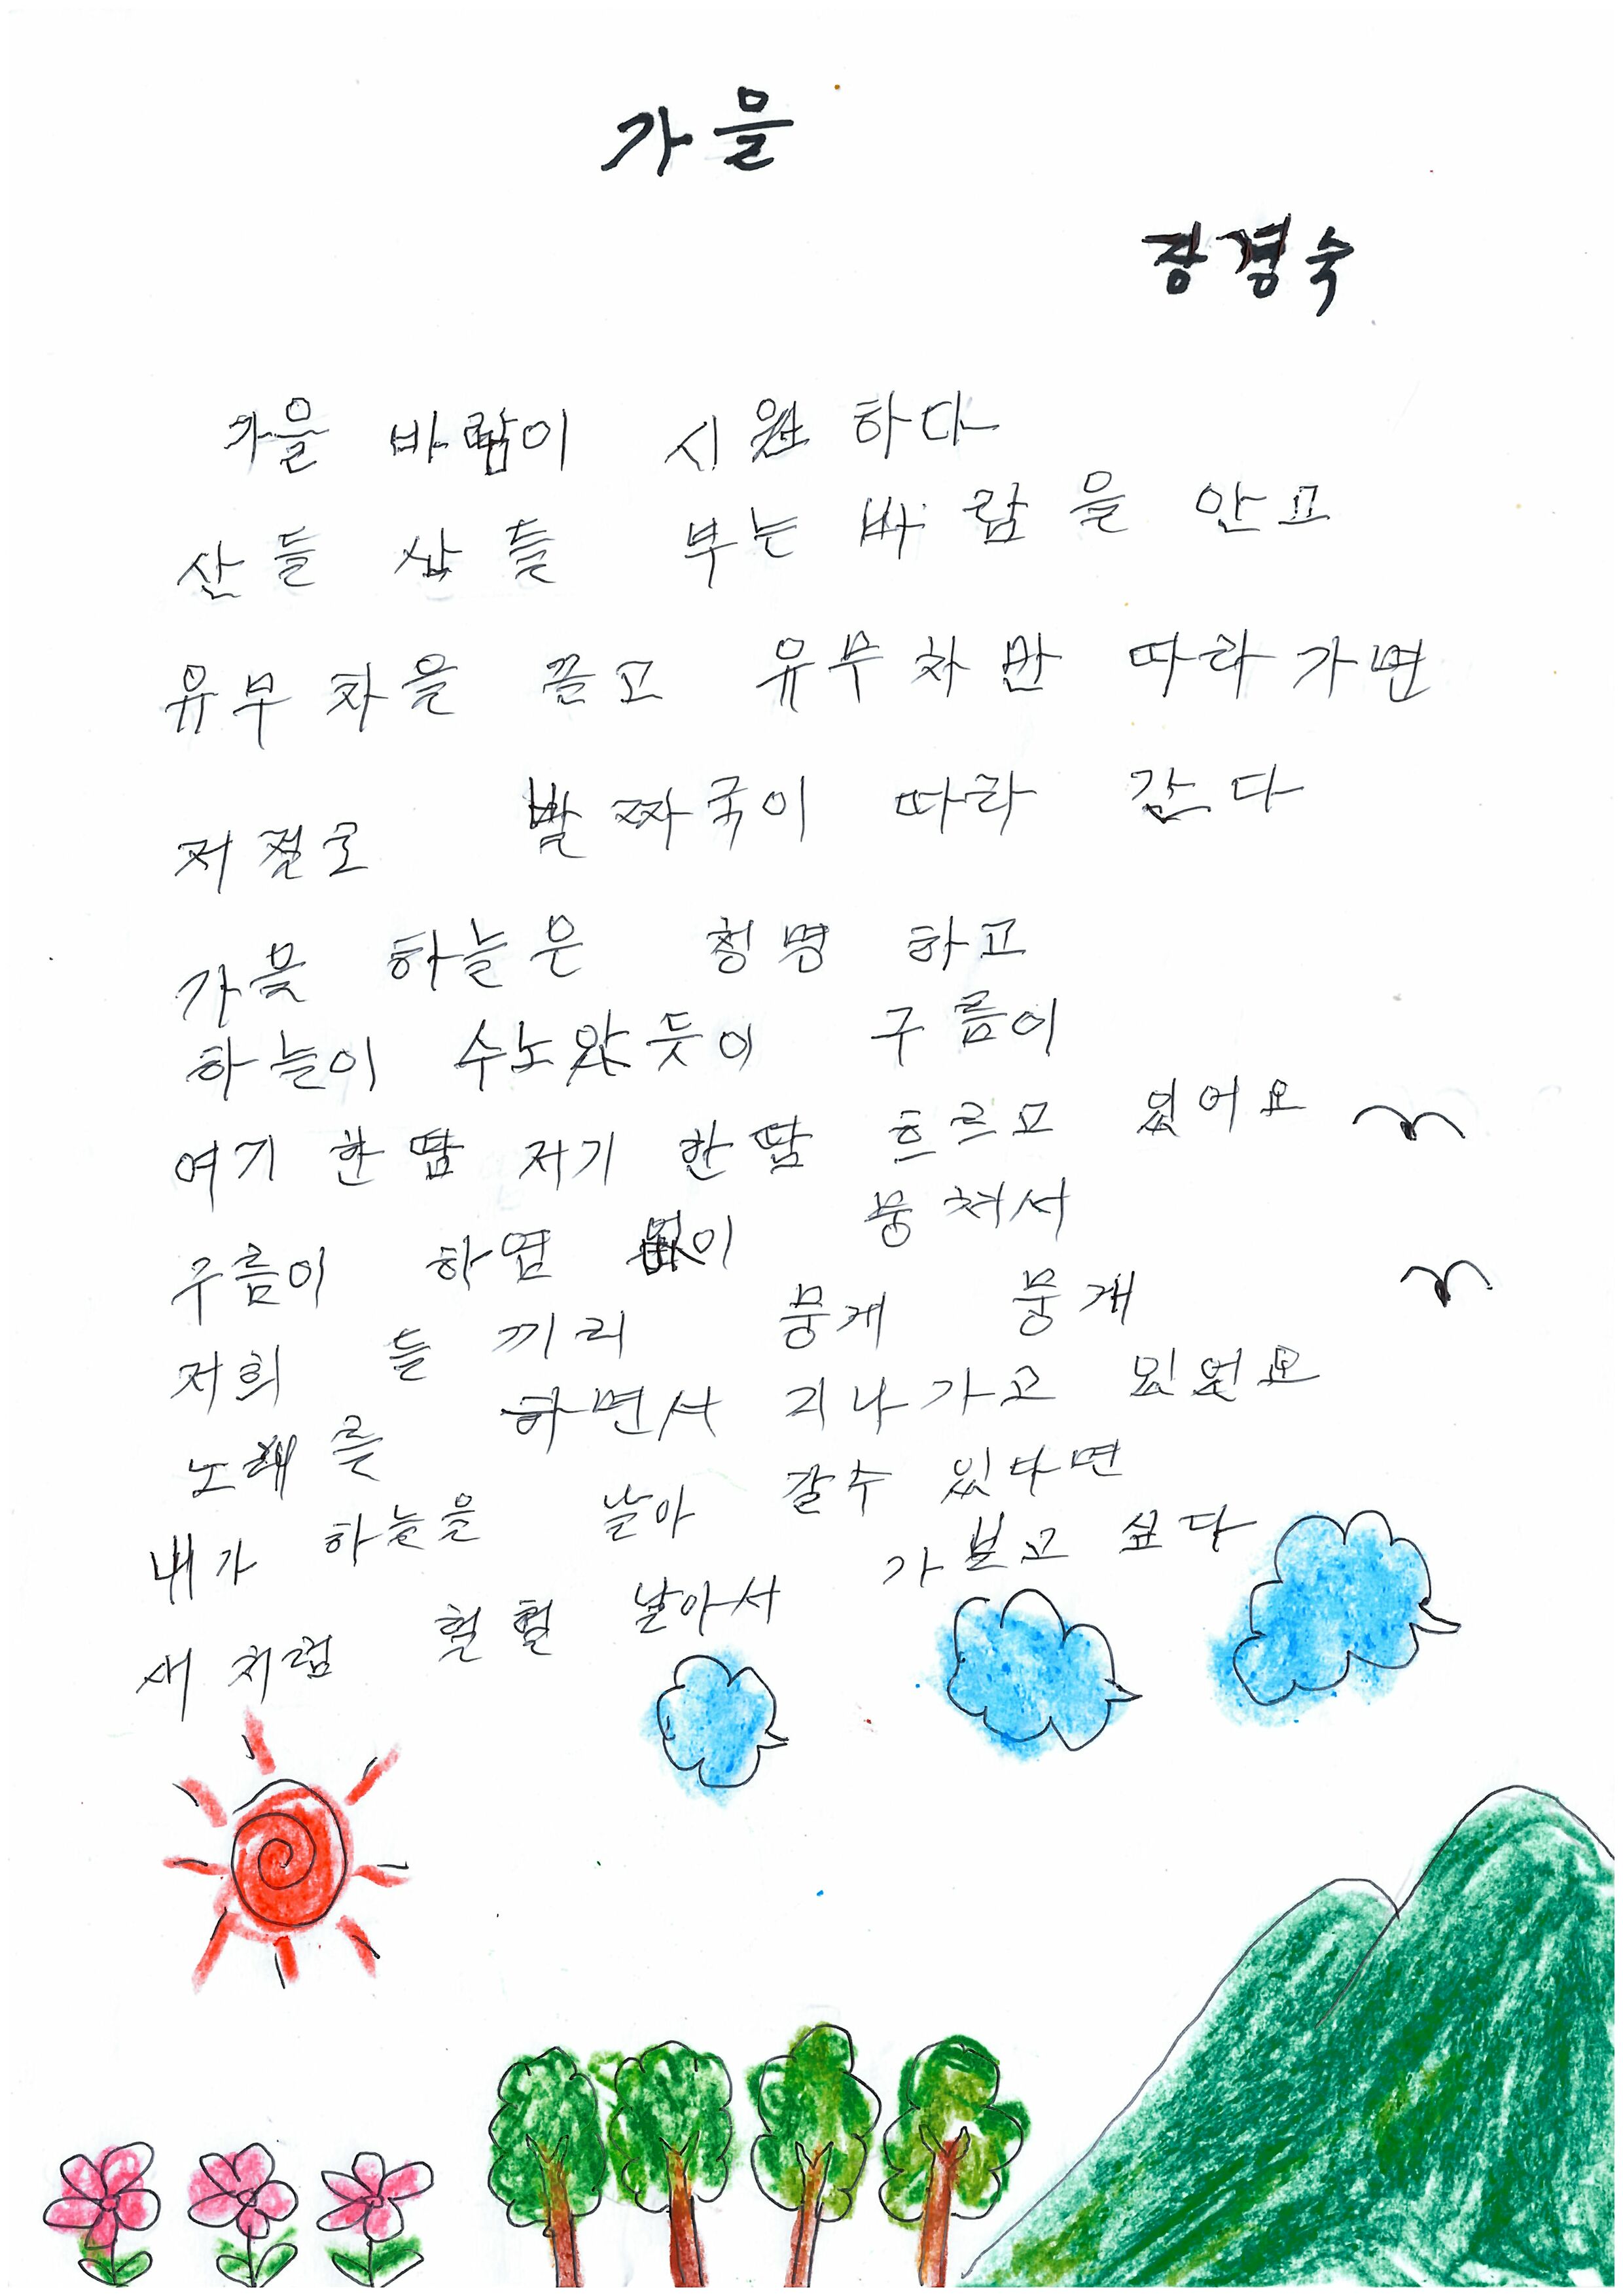 가을
장경숙
가을 바람이 시원 하다
산들 산들 부는 바람을 안고
유무차을 끌고 유무차만 따라가면
저절로 발짜국이 따라 간다
가을 하늘은 청명 하고
하늘이 수노았듯이 구름이
여기 한땀 저기 한땀 흐르고 있어요
구름이 하염 없이 뭉쳐서
저희 들 끼리 뭉게 뭉개
노래를 하면서 지나가고 있어요
내가 하늘을 날아 갈수 있다면
새처럼 훨훨 날아서 가보고 싶다